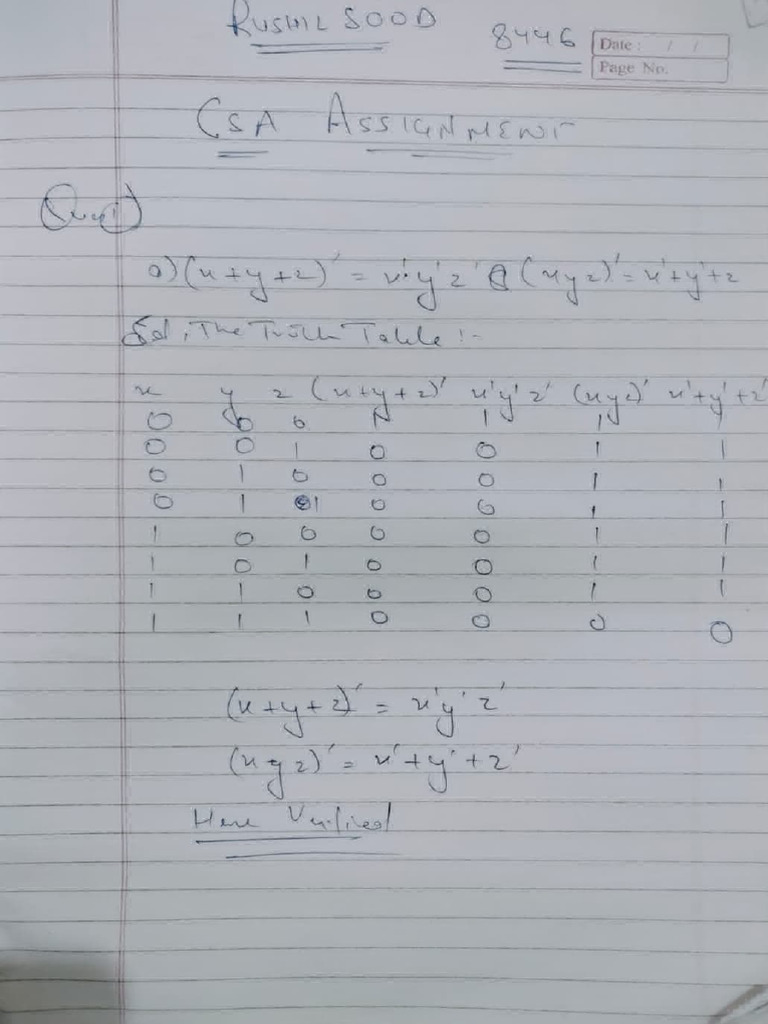 RUSHIL SOOD
8446
Date : / /
Page No.
CSA ASSIGNMENT
a) (x+y+z)' = x'y'z' (xyz)' = x'+y'+z
Sol, The Truth Table :-
x y z (x+y+z)' x'y'z' (xyz)' x'+y'+z'
0 0 0 1 1 1 1
0 0 1 0 0 1 1
0 1 0 0 0 1 1
0 1 1 0 0 1 1
1 0 0 0 0 1 1
1 0 1 0 0 1 1
1 1 0 0 0 1 1
1 1 1 0 0 0 0
(x+y+z)' = x'y'z'
(xyz)' = x'+y'+z'
Verified